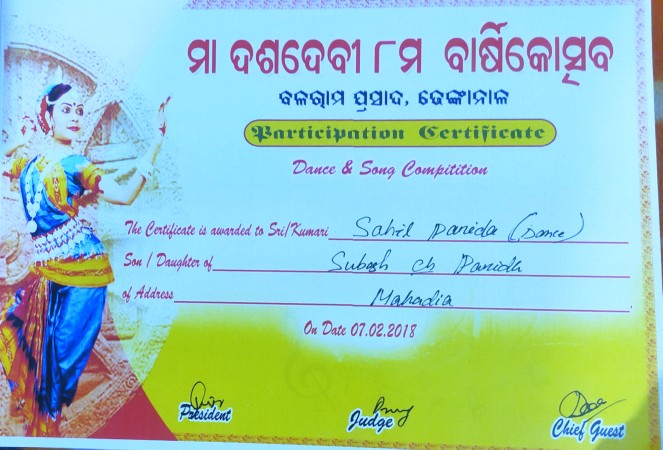 ମା ଦଶଦେବୀ ୮ମ ବାର୍ଷିକୋତ୍ସବ
ବଳରାମ ପ୍ରସାଦ, ଢେଙ୍କାନାଳ
Participation Certificate
Dance & Song Compitition
The Certificate is awarded to Sri/Kumari Sahil Parida (Dance)
Son / Daughter of Subash ch Parida
of Address Mahadia
On Date 07.02.2018
President Judge Chief Guest